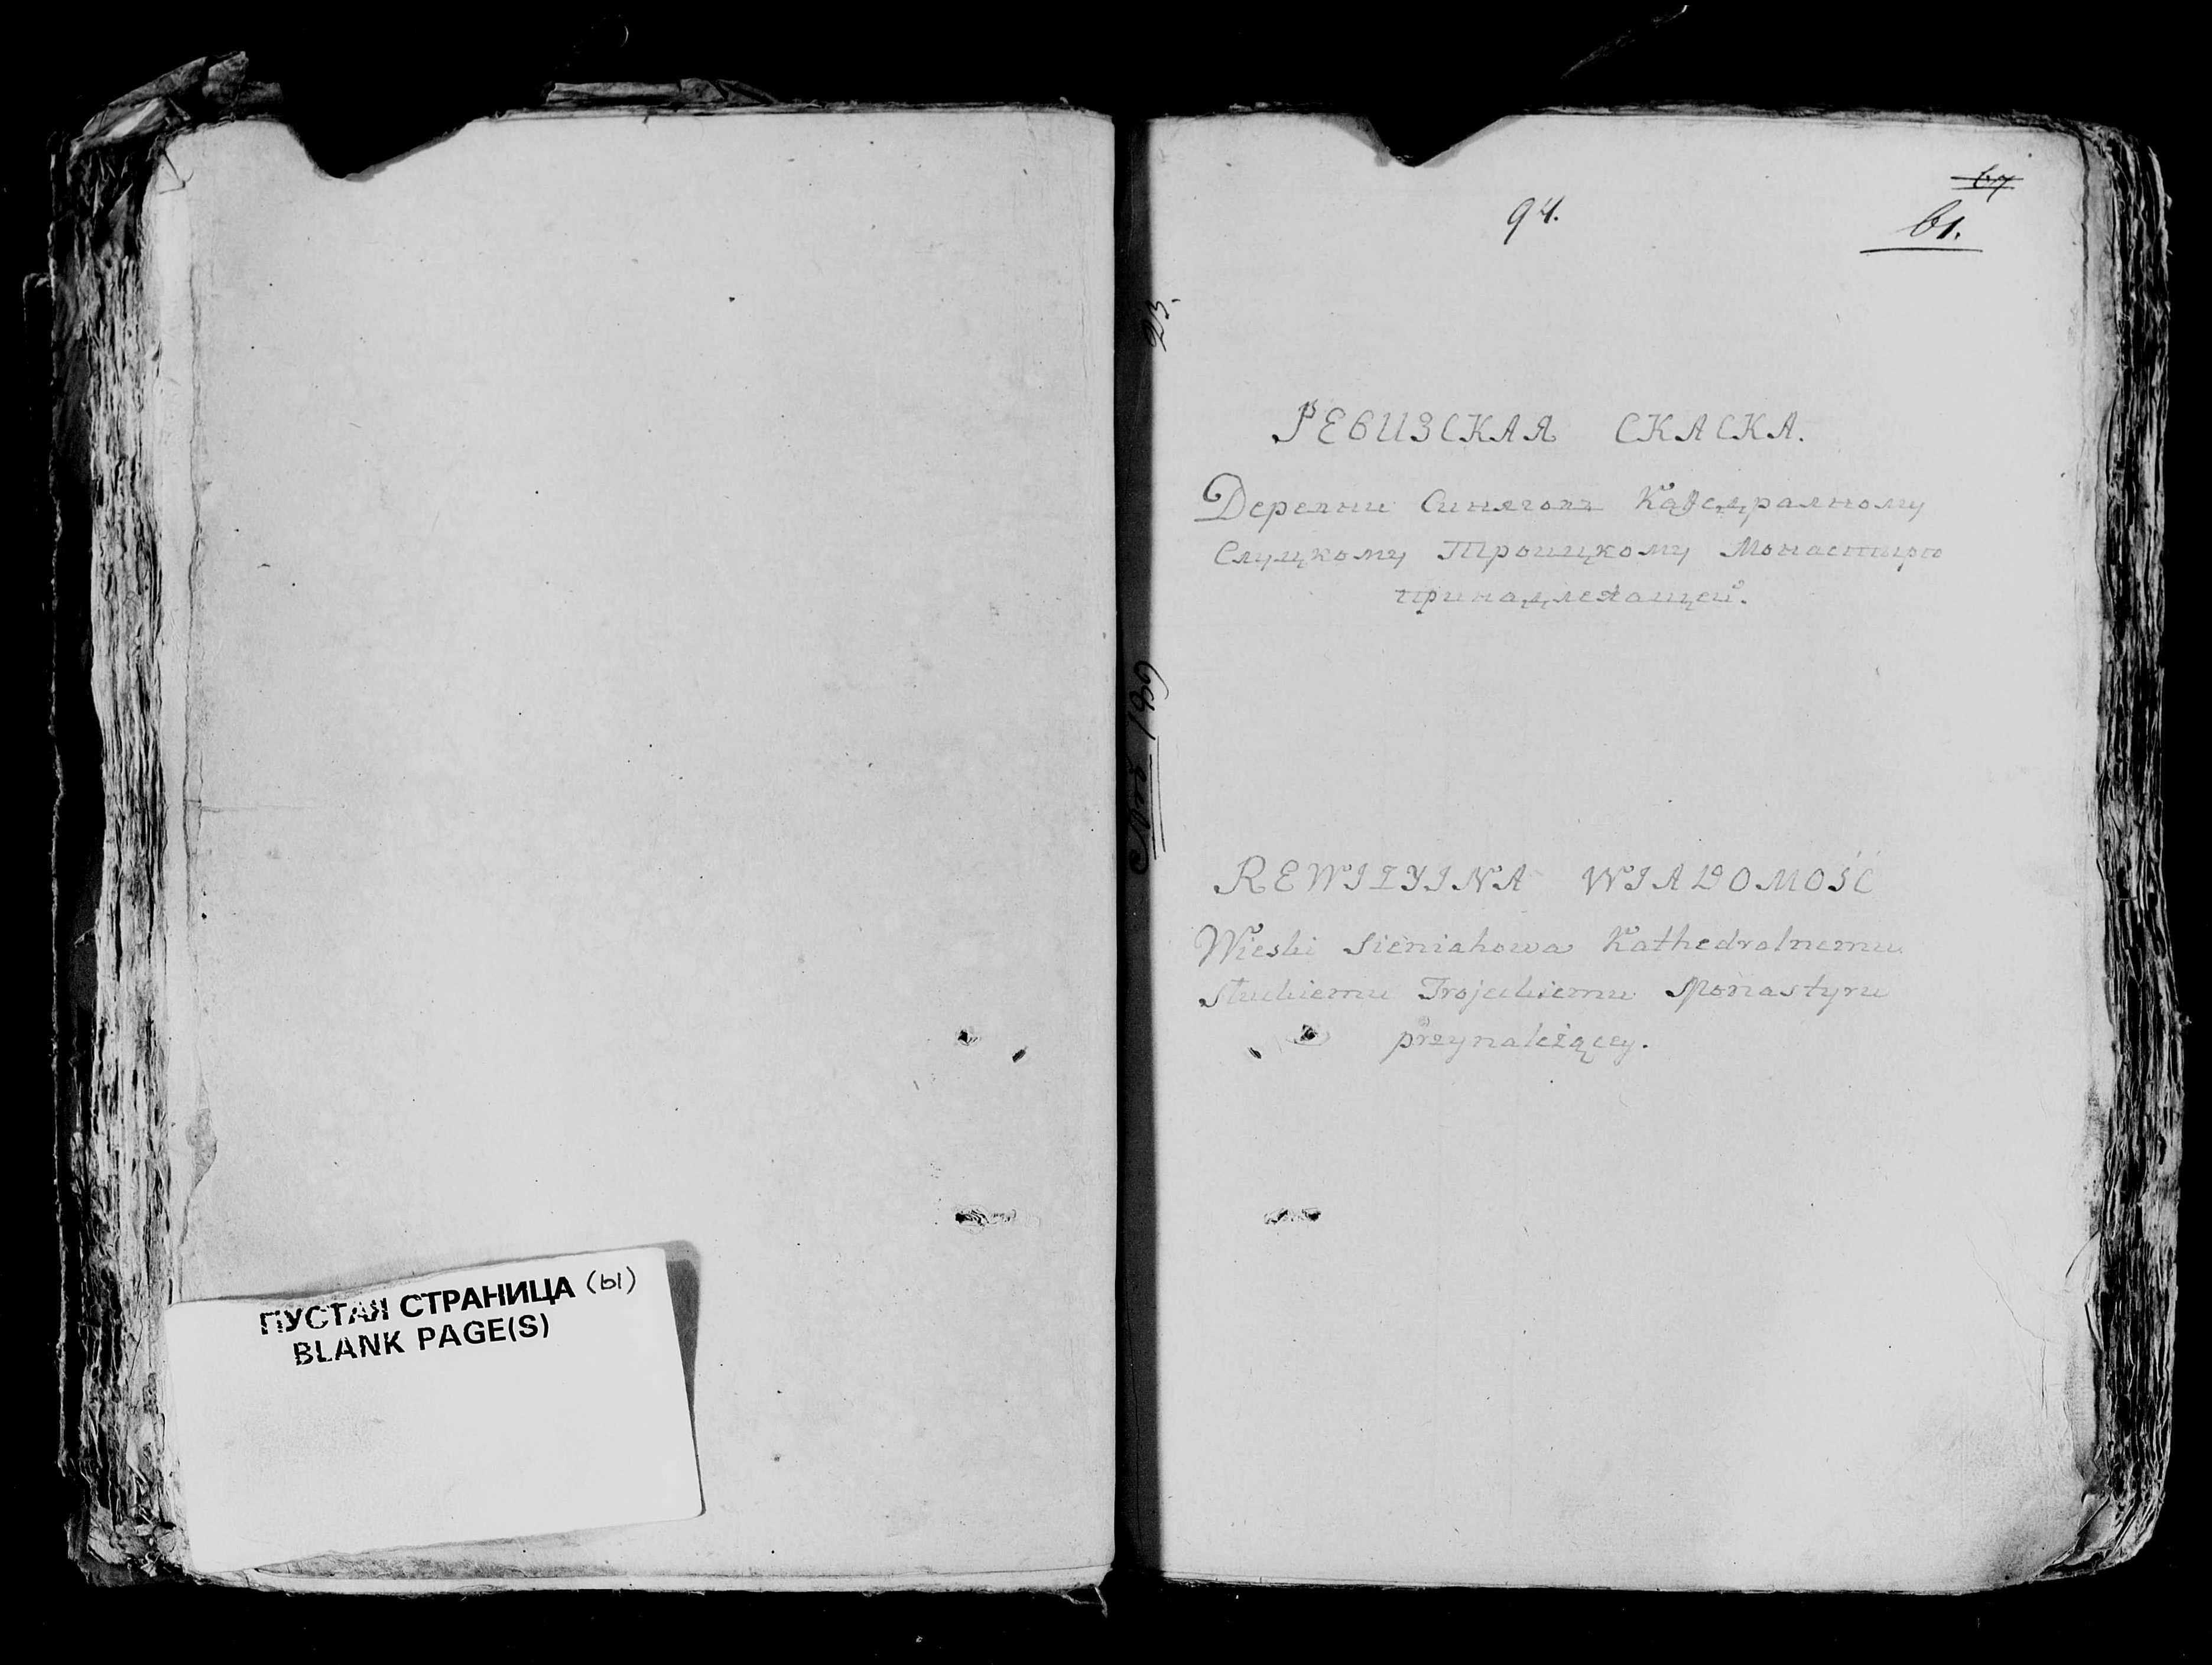 ПУСТАЯ СТРАНИЦА (ы)
BLANK PAGE(S)
94.
67
61.
23.
РЕВИЗСКАЯ СКАСКА.
Деревни Синяговъ Каѳедралному
Слуцкому Троицкому Монастырю
принадлежащей.
REWIZYINA WIADOMOŚĆ
Wieski Sieniahowa Kathedralnemu
Słuckiemu Trojeckiemu Monastyru
przynależącey.